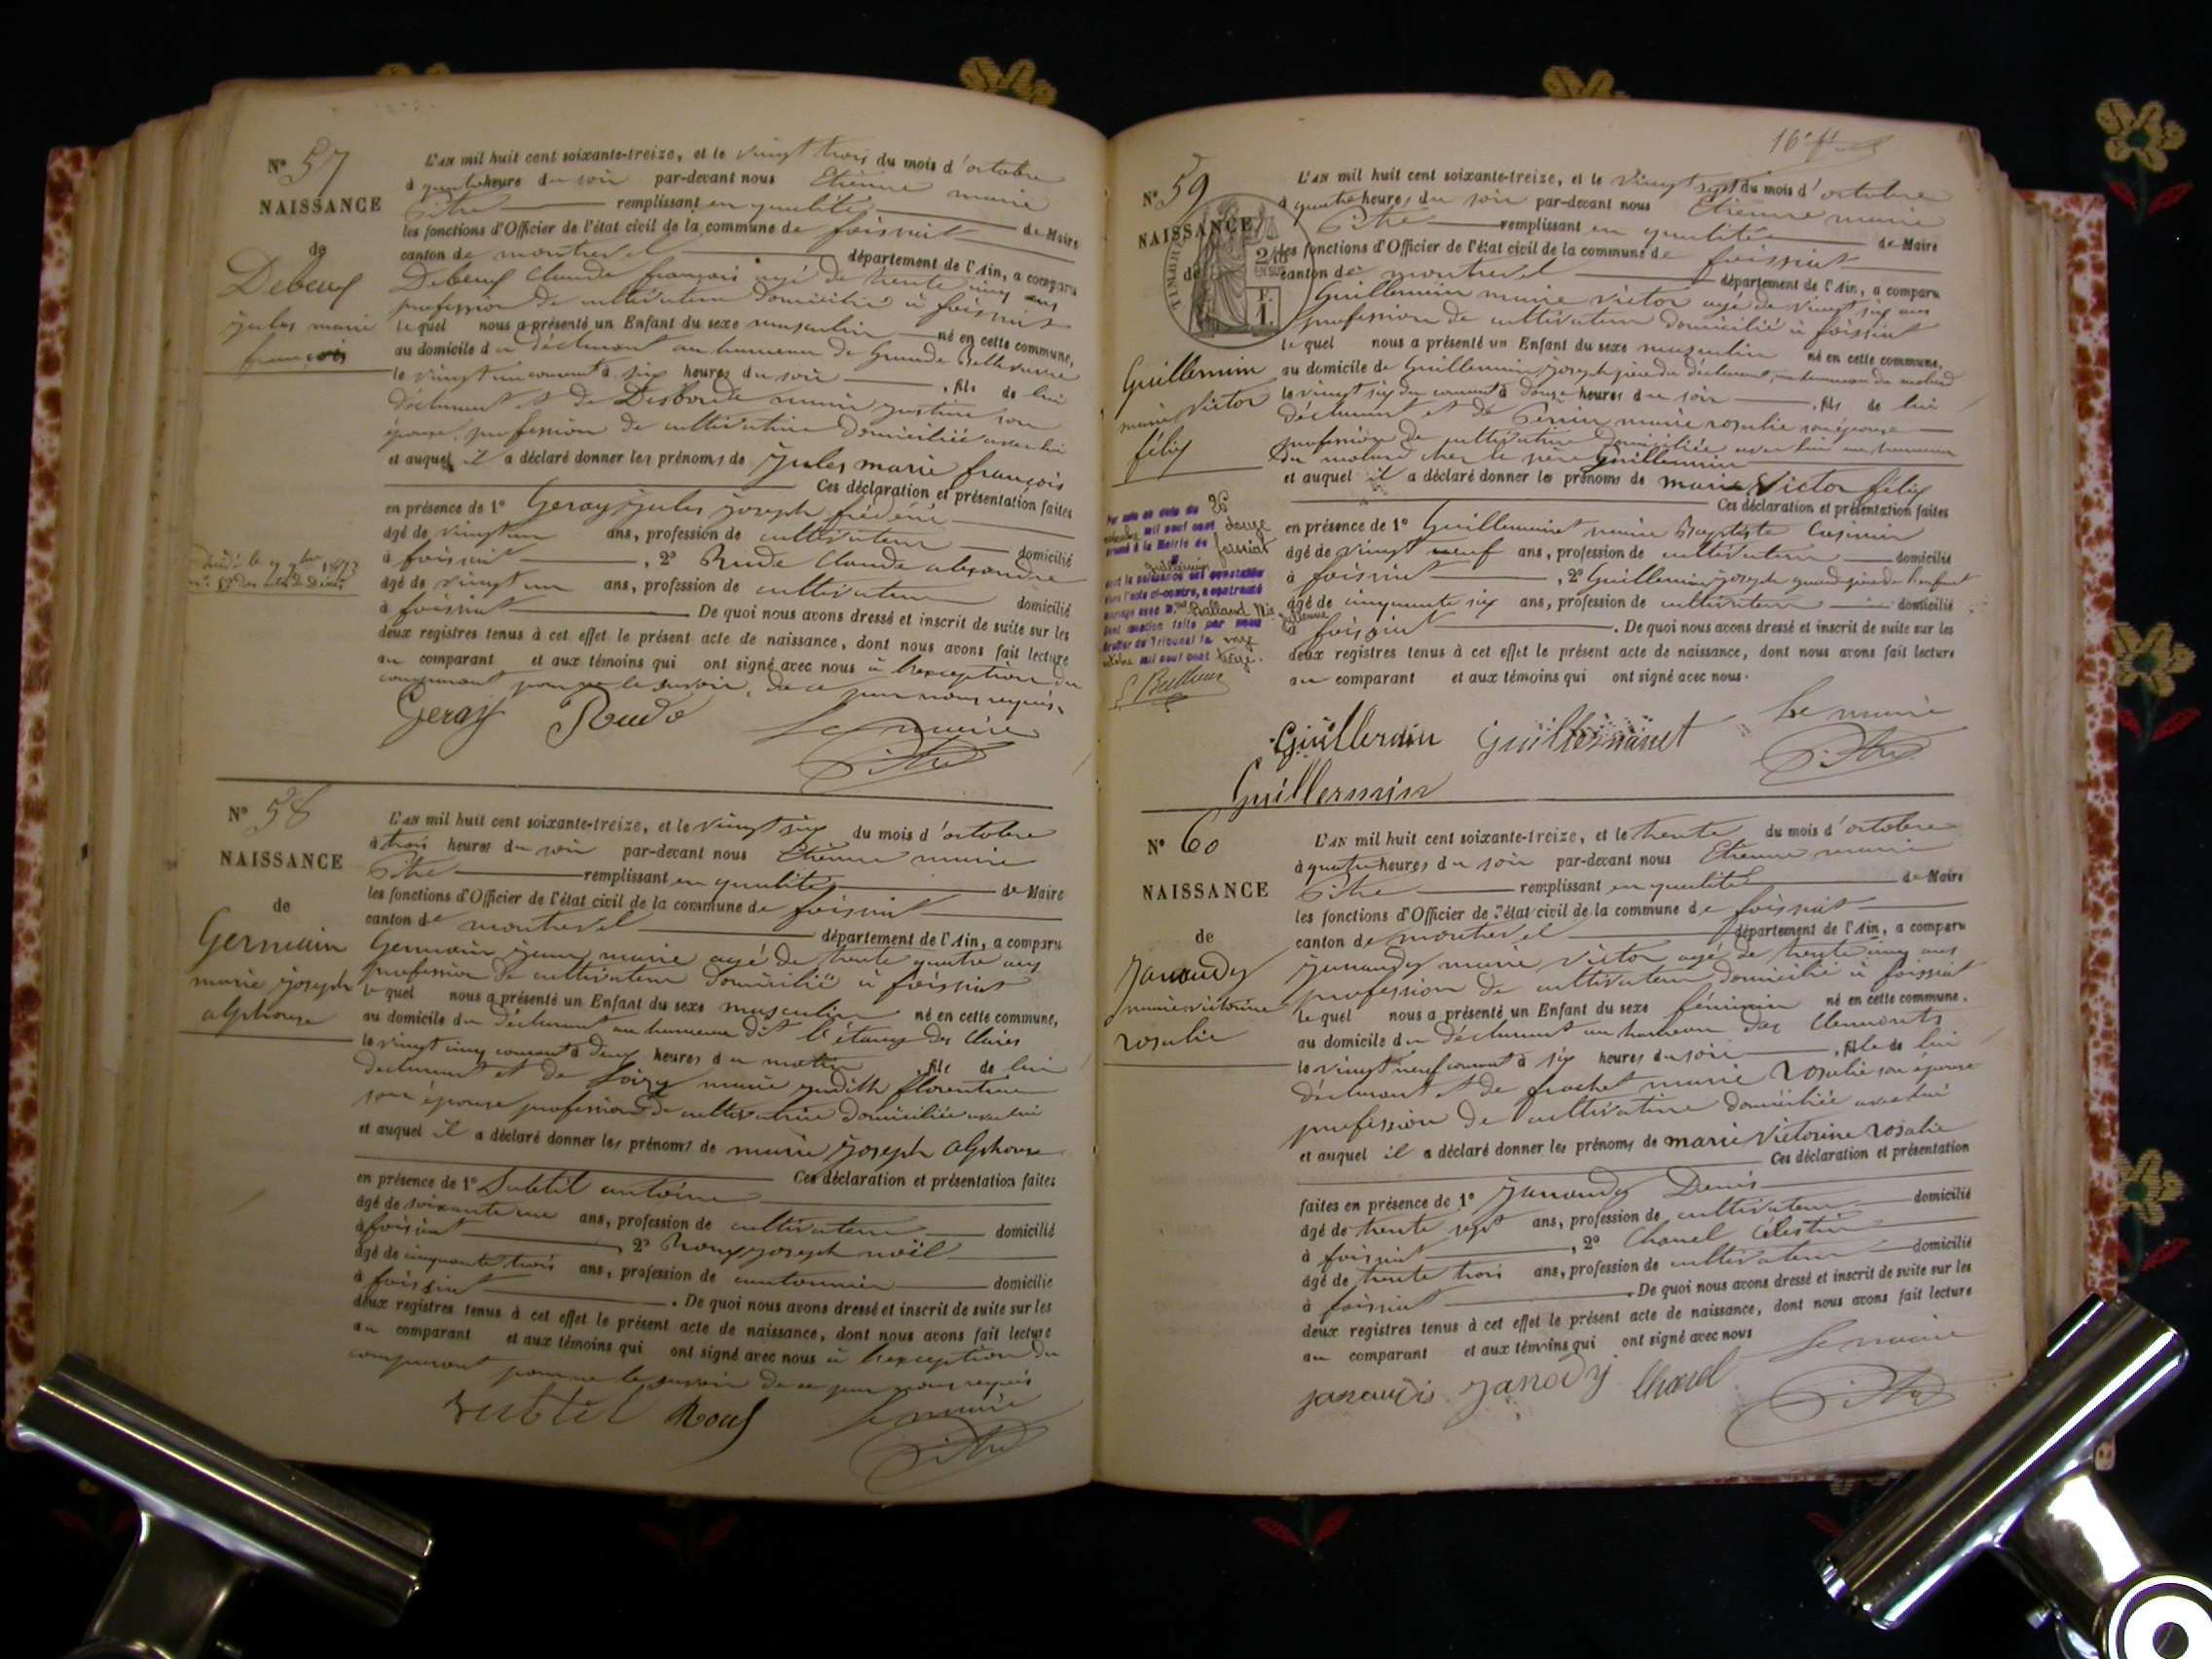 N° 57
NAISSANCE
de
Debeuf
jules marie
françois
L'AN mil huit cent soixante-treize, et le vingt trois du mois d'octobre
à quatre heure du soir par-devant nous Etienne marie
Pitre remplissant en qualité de Maire
les fonctions d'Officier de l'état civil de la commune de foissiat
canton de montrevel département de l'Ain, a comparu
Debeuf Claude françois agé de trente cinq ans
profession de cultivateur domicilié à foissiat
lequel nous a présenté un Enfant du sexe masculin né en cette commune,
au domicile du déclarant au hameau de Grande
le vingt un courant à six heures du soir, fils de lui
déclarant et de Desborde marie justine son
épouse, profession de cultivatrice domiciliée avec lui
et auquel il a déclaré donner les prénoms de jules marie françois
Ces déclaration et présentation faites
en présence de 1° Geray jules joseph frédéric
âgé de vingt un ans, profession de cultivateur domicilié
à foissiat, 2° Rude Claude alexandre
âgé de vingt un ans, profession de cultivateur domicilié
à foissiat De quoi nous avons dressé et inscrit de suite sur les
deux registres tenus à cet effet le présent acte de naissance, dont nous avons fait lecture
au comparant et aux témoins qui ont signé avec nous à l'exception du
comparant pour ne le savoir, de ce par nous requis.
Geray Rude Le maire
Pitre
N° 58
NAISSANCE
de
Germain
marie joseph
alphonse
L'AN mil huit cent soixante-treize, et le vingt six du mois d'octobre
à trois heures du soir par-devant nous Etienne marie
Pitre remplissant en qualité de Maire
les fonctions d'Officier de l'état civil de la commune de foissiat
canton de montrevel département de l'Ain, a comparu
Germain jean marie agé de trente quatre ans
profession de cultivateur domicilié à foissiat
lequel nous a présenté un Enfant du sexe masculin né en cette commune,
au domicile du déclarant au hameau dit l'étang des Claires
le vingt cinq courant à deux heures du matin, fils de lui
déclarant et de Loisy marie judith florentine
son épouse profession de cultivatrice domiciliée avec lui
et auquel il a déclaré donner les prénoms de marie joseph alphonse
Ces déclaration et présentation faites
en présence de 1° Subtil antoine
âgé de soixante un ans, profession de cultivateur domicilié
à foissiat, 2° Roux joseph noël
âgé de cinquante trois ans, profession de cantonnier domicilié
à foissiat. De quoi nous avons dressé et inscrit de suite sur les
deux registres tenus à cet effet le présent acte de naissance, dont nous avons fait lecture
au comparant et aux témoins qui ont signé avec nous à l'exception du
comparant pour ne le savoir de ce par nous requis
Subtil Roux Le maire
Pitre
16e
N° 59
NAISSANCE
de
Guillermin
marie Victor
félix
L'AN mil huit cent soixante-treize, et le vingt sept du mois d'octobre
à quatre heures du soir par-devant nous Etienne marie
Pitre remplissant en qualité de Maire
les fonctions d'Officier de l'état civil de la commune de foissiat
canton de montrevel département de l'Ain, a comparu
Guillermin marie victor agé de vingt six ans
profession de cultivateur domicilié à foissiat
lequel nous a présenté un Enfant du sexe masculin né en cette commune,
au domicile de Guillermin joseph père du déclarant, au hameau du molard
le vingt six du courant à douze heures du soir, fils de lui
déclarant et de Perrin marie rosalie son épouse
profession de cultivatrice domiciliée avec lui au hameau
du molard chez le père Guillermin
et auquel il a déclaré donner les prénoms de marie Victor félix
Ces déclaration et présentation faites
en présence de 1° Guilleminet marie Baptiste Casimir
âgé de vingt neuf ans, profession de cultivateur domicilié
à foissiat, 2° Guillermin joseph grand père de l'enfant
âgé de cinquante six ans, profession de cultivateur domicilié
à foissiat. De quoi nous avons dressé et inscrit de suite sur les
deux registres tenus à cet effet le présent acte de naissance, dont nous avons fait lecture
au comparant et aux témoins qui ont signé avec nous.
Guillermin Guilleminet Le maire
Guillermin Pitre
N° 60
NAISSANCE
de
Janaudy
marie victorine
rosalie
L'AN mil huit cent soixante-treize, et le trente du mois d'octobre
à quatre heures du soir par-devant nous Etienne marie
Pitre remplissant en qualité de Maire
les fonctions d'Officier de l'état civil de la commune de foissiat
canton de montrevel département de l'Ain, a comparu
Janaudy marie victor agé de trente cinq ans
profession de cultivateur domicilié à foissiat
lequel nous a présenté un Enfant du sexe féminin né en cette commune,
au domicile du déclarant au hameau des Clemonts
le vingt neuf courant à six heures du soir, fille de lui
déclarant et de frachet marie Rosalie son épouse
profession de cultivatrice domiciliée avec lui
et auquel il a déclaré donner les prénoms de marie Victorine rosalie
Ces déclaration et présentation
faites en présence de 1° Janaudy Denis
âgé de trente sept ans, profession de cultivateur domicilié
à foissiat, 2° Chanel Célestin
âgé de trente trois ans, profession de cultivateur domicilié
à foissiat. De quoi nous avons dressé et inscrit de suite sur les
deux registres tenus à cet effet le présent acte de naissance, dont nous avons fait lecture
au comparant et aux témoins qui ont signé avec nous Le maire
Janody Chanel
Pitre